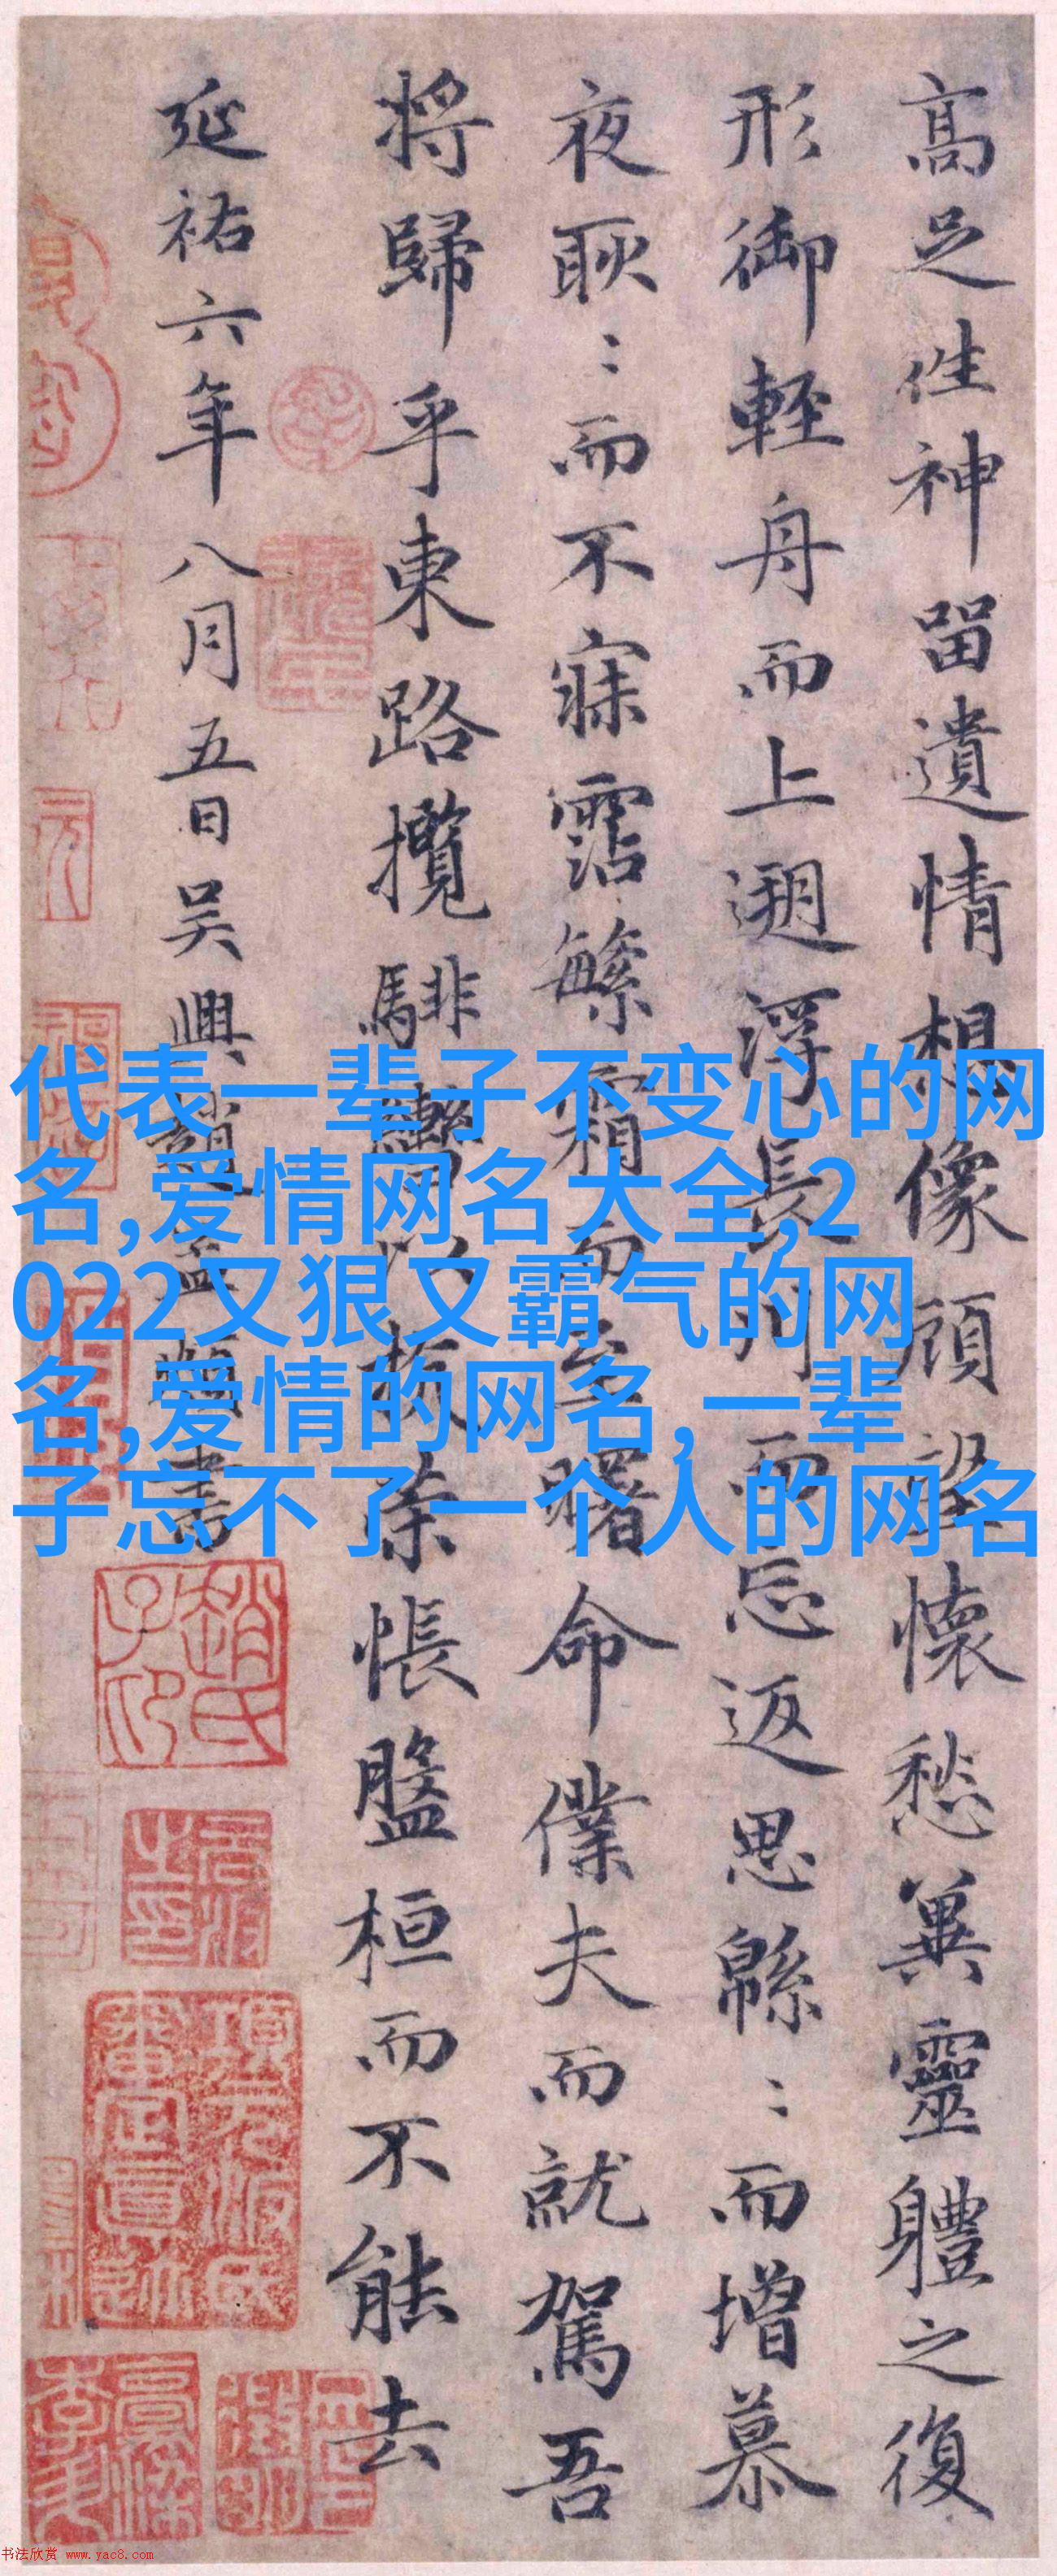 高足往神留遺情想像顧望懷愁冀靈體之復
形御輕舟而上遡浮長川而忘返思綿〻而增慕
夜耿〻而不寐霑繁霜而至曙命僕夫而就駕吾
將歸乎東路攬騑轡以抗策悵盤桓而不能去
延祐六年八月五日吳興趙孟頫書
代表一辈子不变心的网
名,爱情网名大全,2
022又狠又霸气的网
名,爱情的网名,一辈
子忘不了一个人的网名
趙氏子印
書法欣赏 www.yac8.com